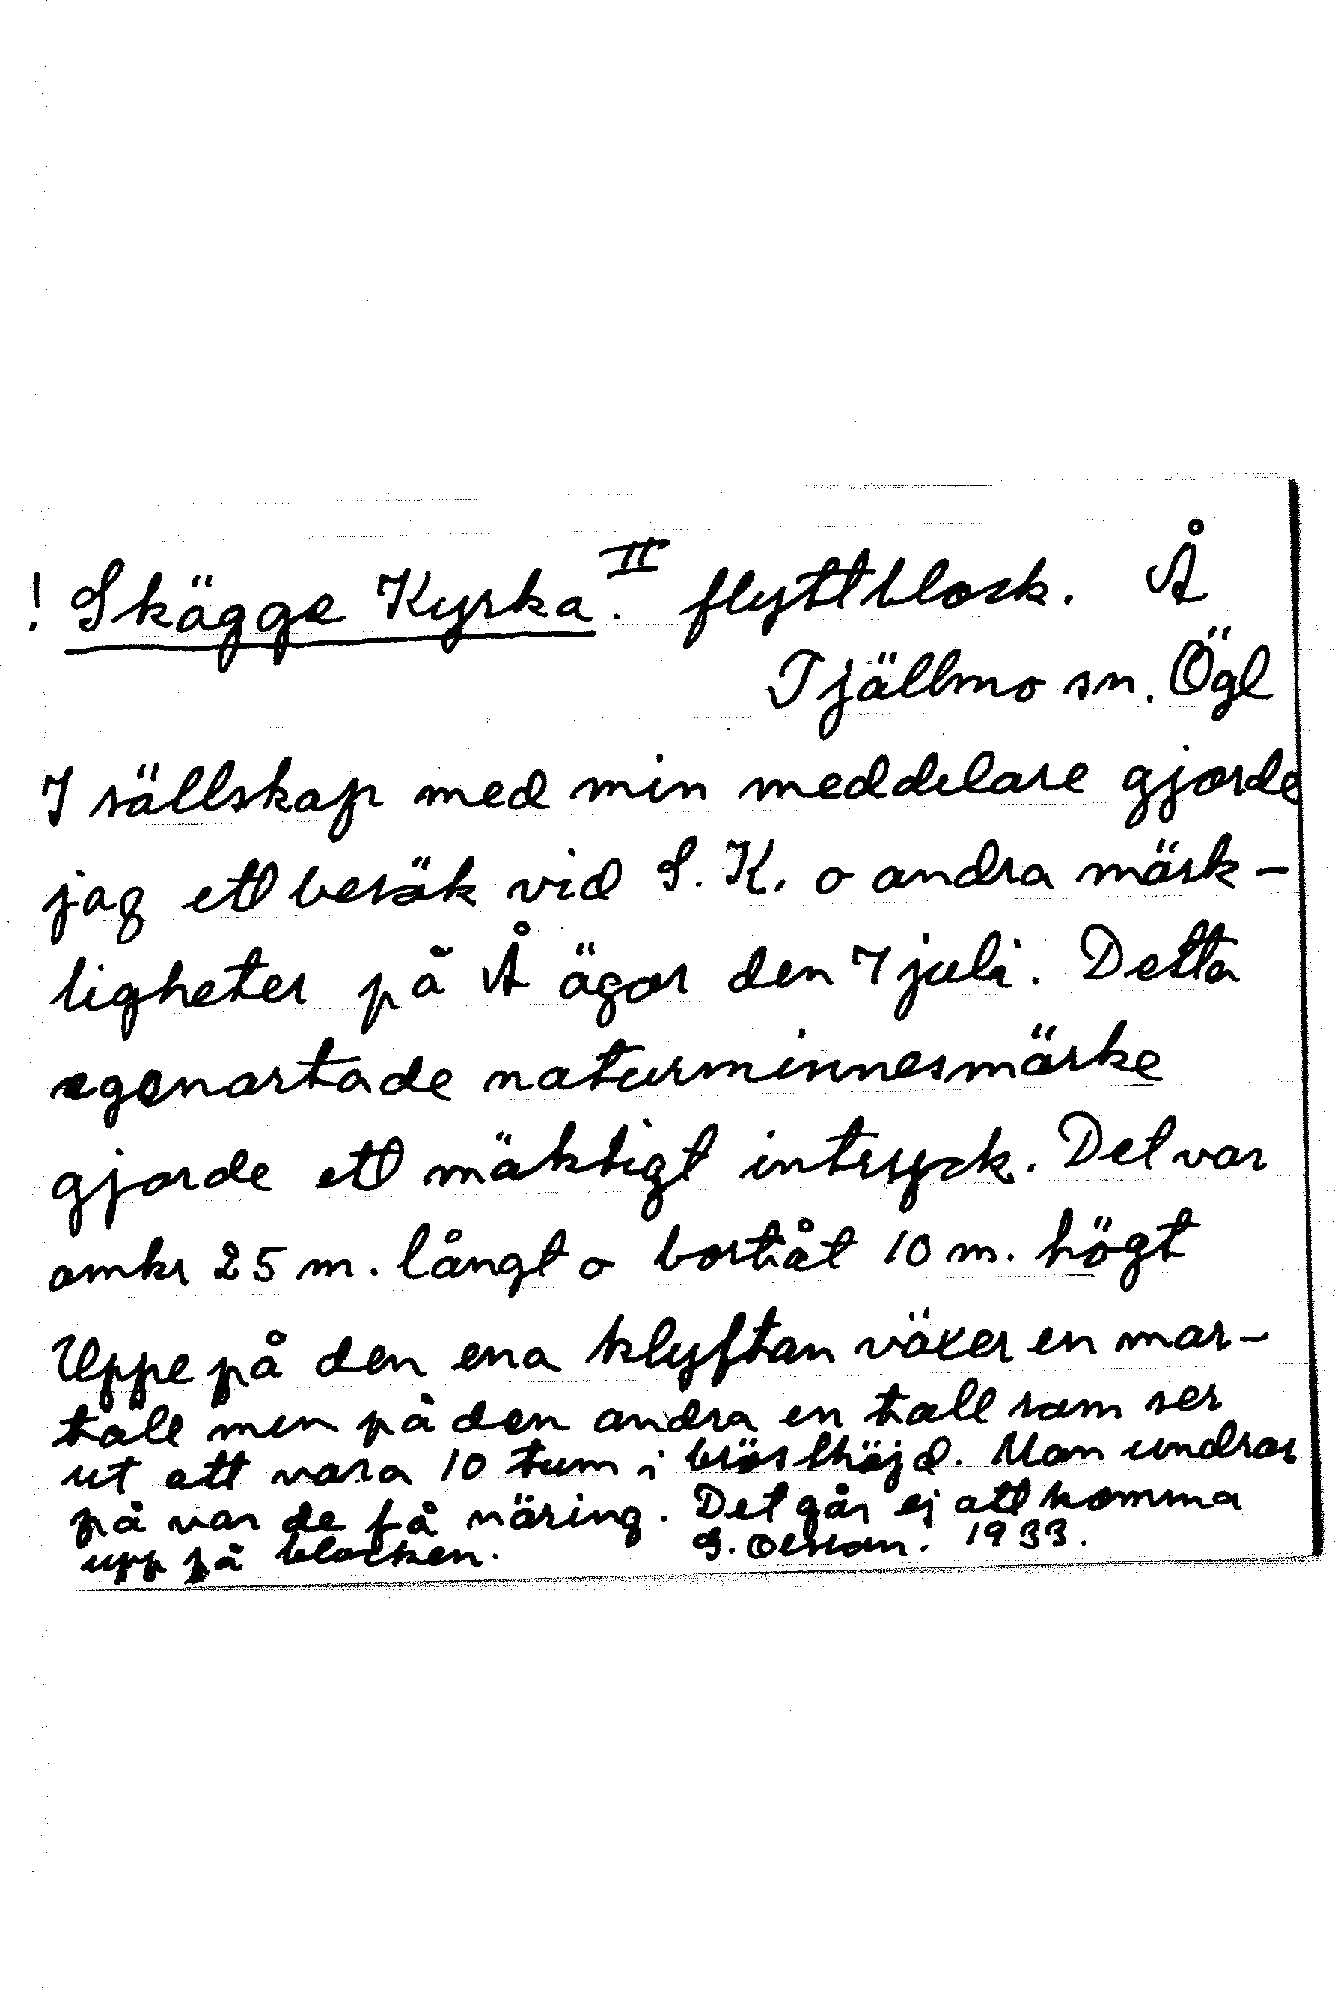 ! Skägge Kyrka. II flyttblock. Å
Tjällmo sn. Ögl
I sällskap med min meddelare gjorde
jag ett besök vid S. K. o andra märk-
ligheter på Å ägor den 7 juli. Detta
egenartade naturminnesmärke
gjorde ett mäktigt intryck. Det var
omkr 25 m. långt o bortåt 10 m. högt
Uppe på den ena klyftan växer en mar-
tall men på den andra en tall som ser
ut att vara 10 tum i brösthöjd. Man undrar
på var de få näring. Det går ej att komma
upp på blocken. G. Olsson. 1933.